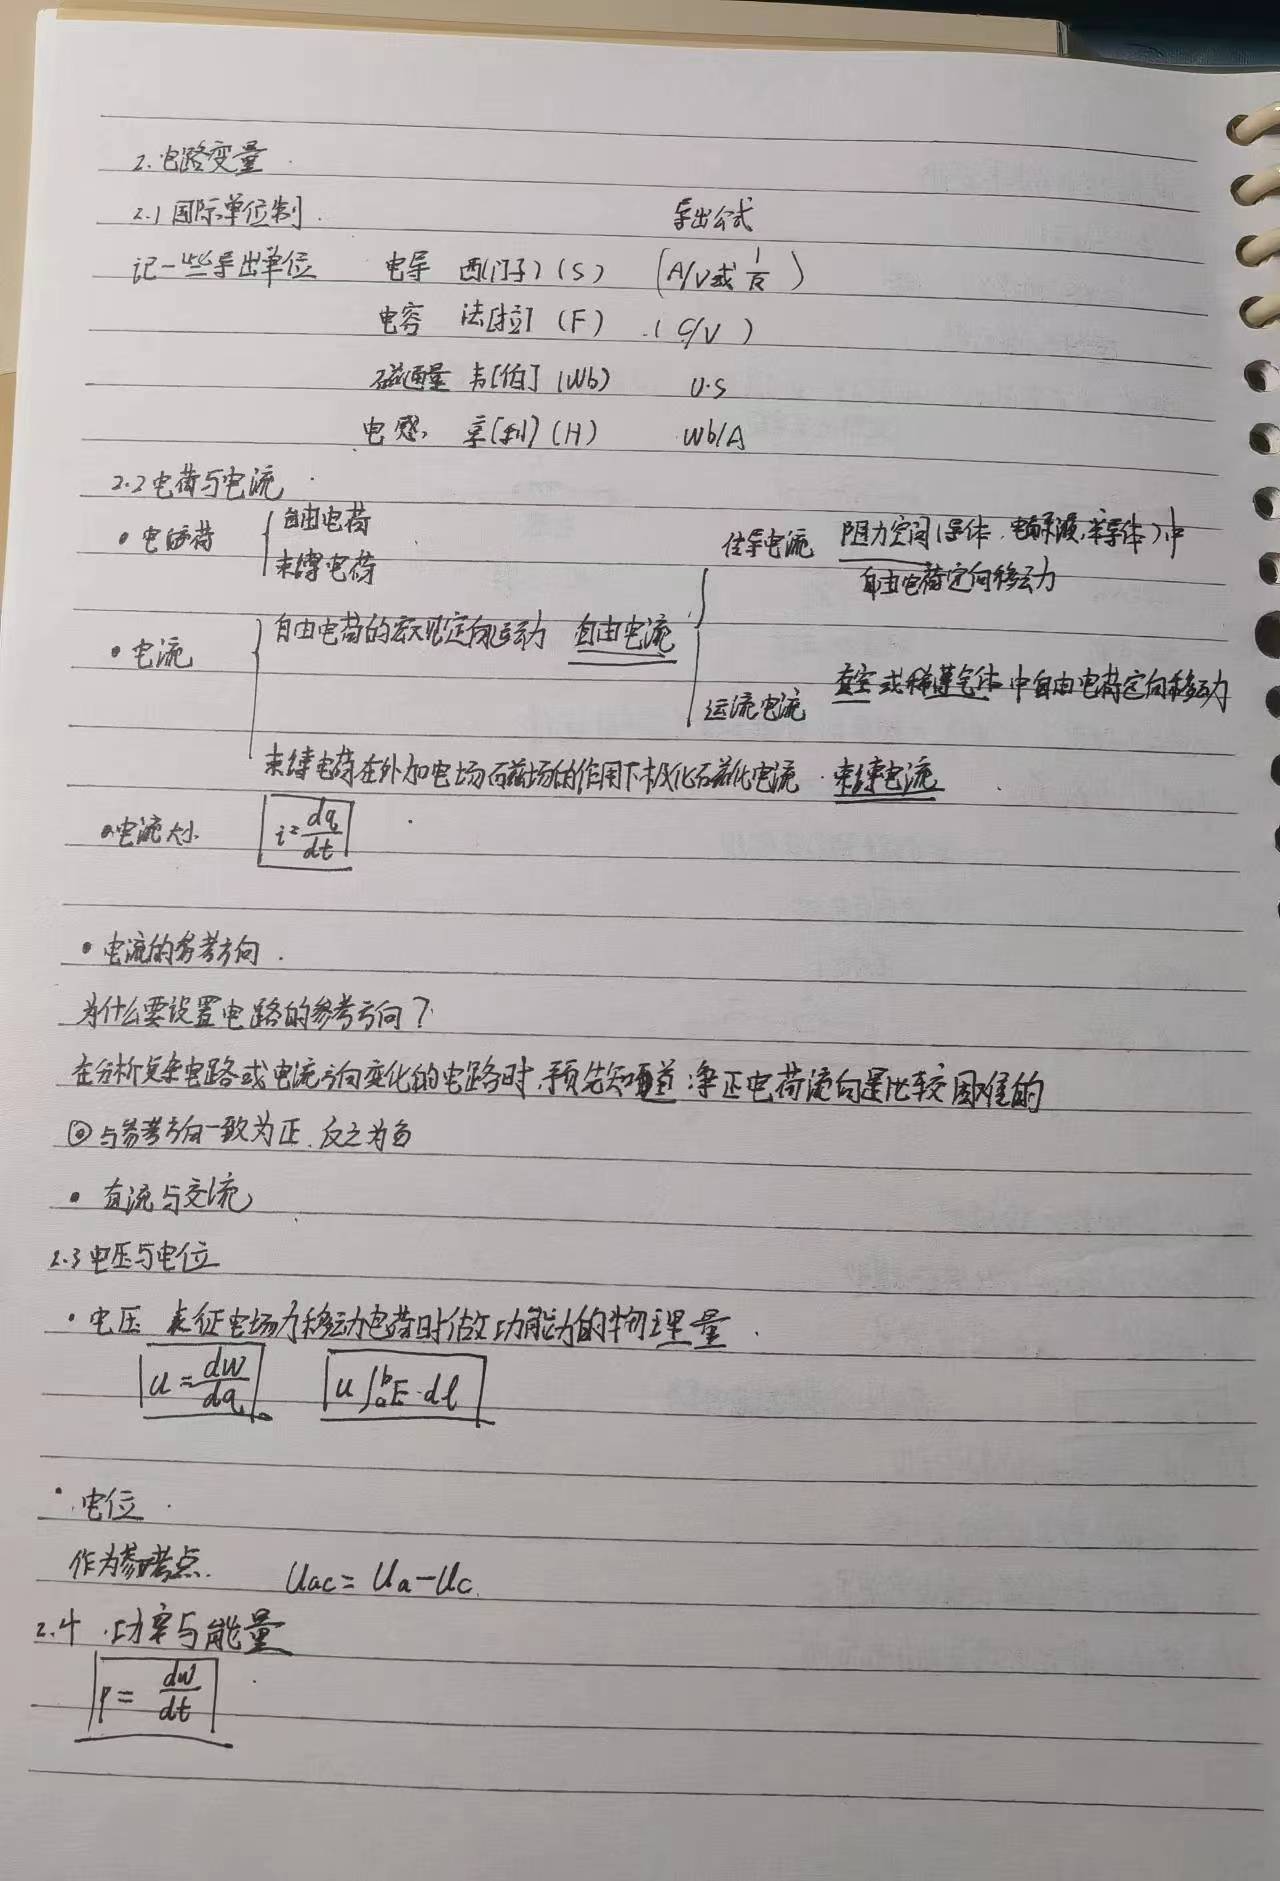 2.电路变量
2.1国际单位制
导出公式
记一些导出单位 电导 西(门子)(S) (A/V或 1/R)
电容 法[拉](F) (C/V)
磁通量 韦[伯](Wb) U·S
电感 亨[利](H) Wb/A
2.2电荷与电流
• 电荷 { 自由电荷
束缚电荷
传导电流 阻力空间(导体、电解液,半导体)中
自由电荷定向移动
• 电流 { 自由电荷的宏观定向运动 自由电流 {
运流电流 真空或稀薄气体中自由电荷定向移动
束缚电荷在外加电场磁场的作用下极化磁化电流 束缚电流
•电流大小 i=dq/dt
• 电流的参考方向
为什么要设置电路的参考方向?
在分析复杂电路或电流方向变化的电路时,预先知道净正电荷流向是比较困难的
与参考方向一致为正,反之为负
• 直流与交流
2.3电压与电位
• 电压 表征电场力移动电荷时做功能力的物理量
u=dw/dq u∫ₐᵇE·dl
• 电位
作为参考点. Uac=Ua-Uc
2.4 功率与能量
P=dw/dt